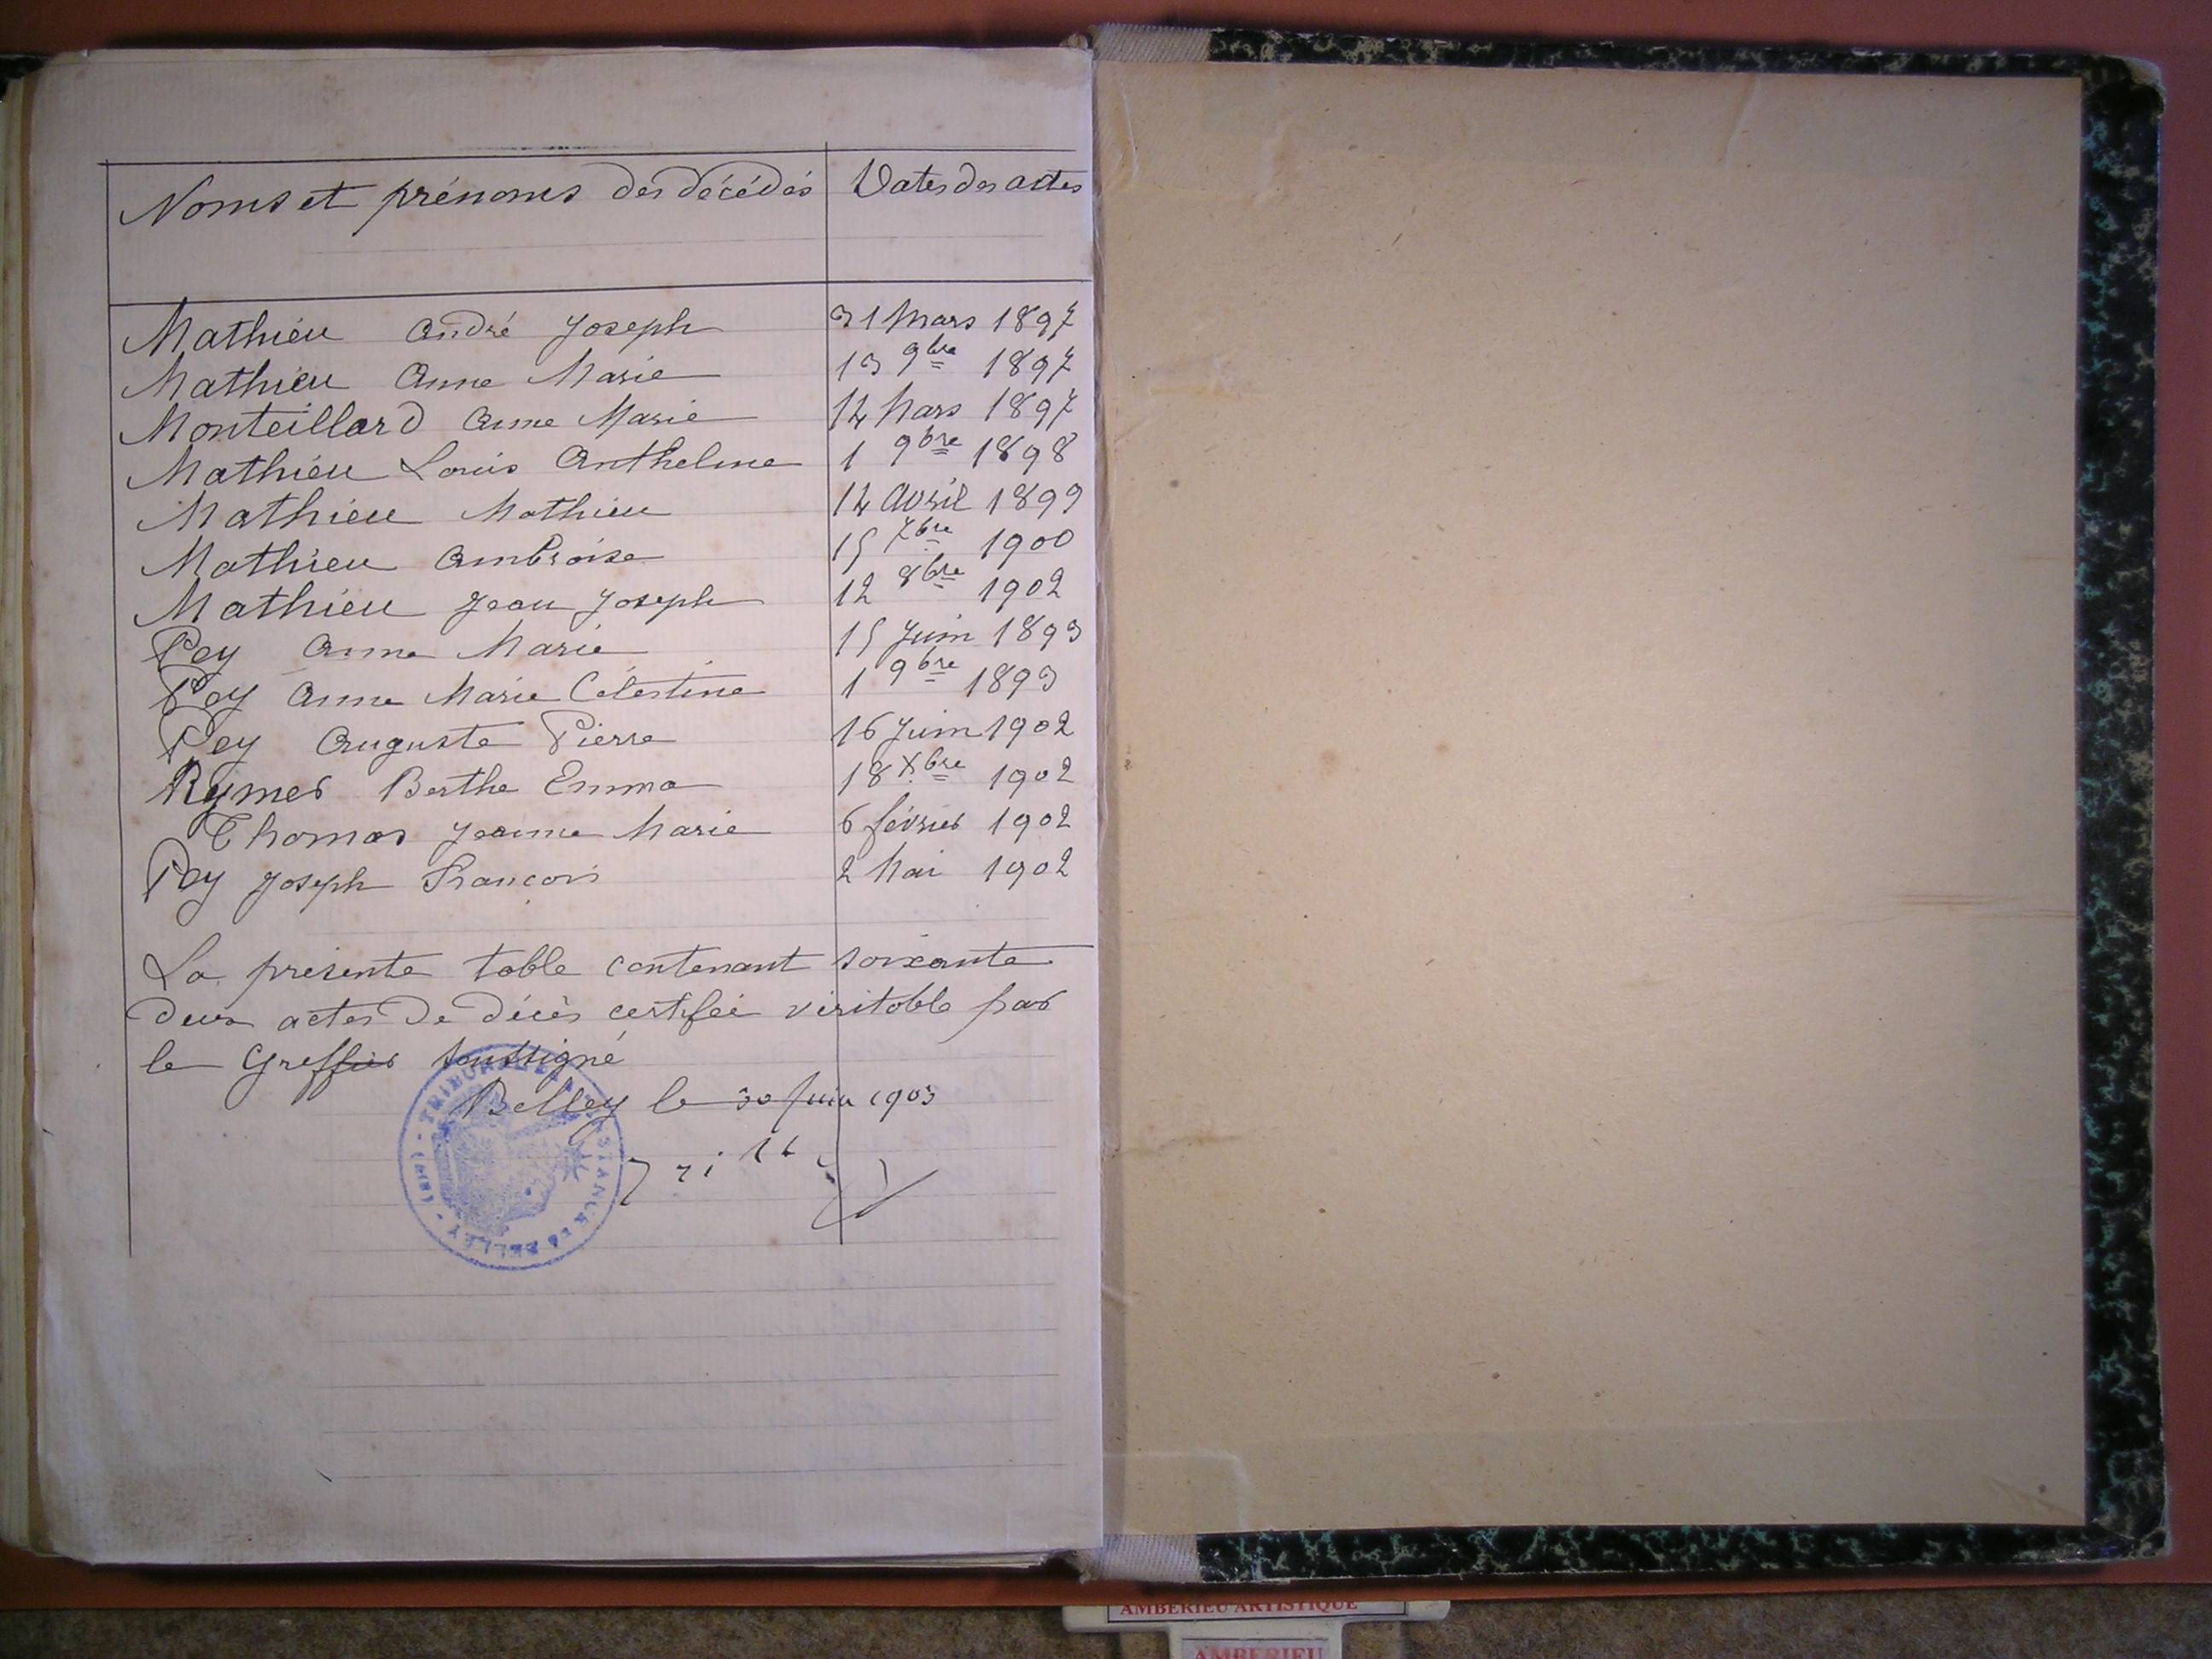 Noms et prénoms des décédés Dates des actes
Mathieu André Joseph 31 Mars 1897
Mathieu Anne Marie 13 9bre 1897
Monteillard Anne Marie 14 Mars 1897
Mathieu Louis Anthelme 1 9bre 1898
Mathieu Mathieu 14 Avril 1899
Mathieu Ambroise 15 7bre 1900
Mathieu Jean Joseph 12 8bre 1902
Pey Anne Marie 15 Juin 1893
Pey Anne Marie Célestine 1 9bre 1893
Pey Auguste Pierre 16 Juin 1902
Rymer Berthe Emma 18 Xbre 1902
Thomas Jeanne Marie 6 février 1902
Pey Joseph François 2 Mai 1902
La présente table contenant soixante
deux actes de décès certifiée véritable par
le Greffier soussigné
Belley le 30 Juin 1903
AMBERIEU ARTISTIQUE
AMBERIEU